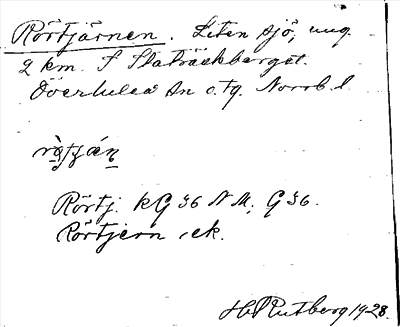 Rörtjärnen. Liten sjö, ung.
2 km. S Slåträskberget.
Överluleå sn o. tg. Norrb. l.
Rörtj. kG 36 N M; G 36.
Rörtjern, ek.
Hj Rutberg 1928.